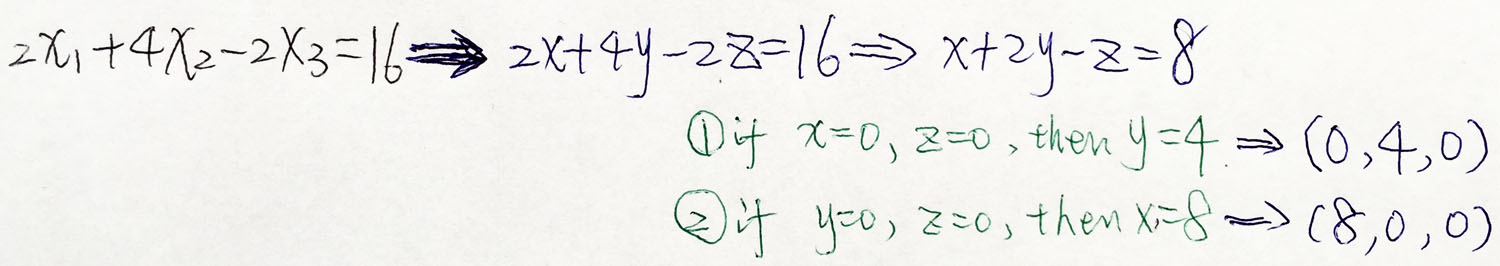 2x₁+4x₂-2x₃=16⟹2x+4y-2z=16⟹x+2y-z=8
①if x=0, z=0, then y=4.⟹(0,4,0)
②if y=0, z=0, then x=8⟹(8,0,0)